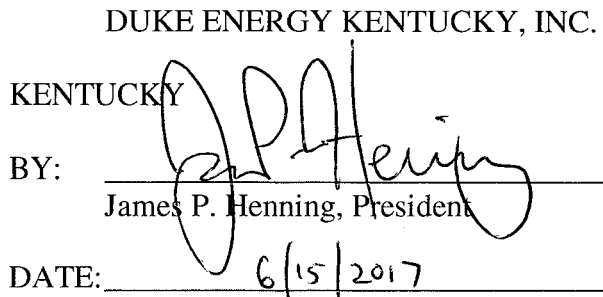 DUKE ENERGY KENTUCKY, INC.
KENTUCKY
BY:
James P. Henning, President
DATE: 6/15/2017